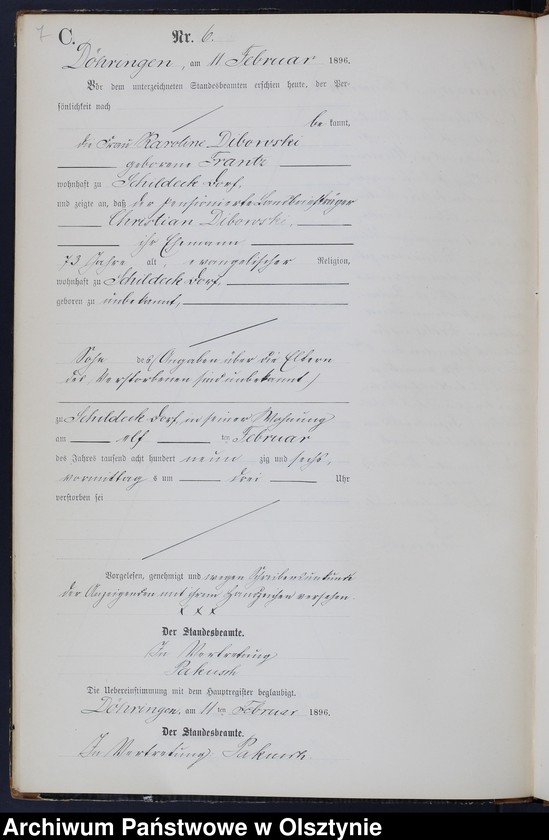 7
C.
Nr. 6.
Döhringen, am 11 Februar 1896.
Vor dem unterzeichneten Standesbeamten erschien heute, der Per-
sönlichkeit nach
be kannt,
die Frau Karoline Dibowski
geborene Frantz
wohnhaft zu Schildeck Dorf,
und zeigte an, daß der pensionierte Landbriefträger
Christian Dibowski,
ihr Ehemann
73 Jahre alt, evangelischer Religion,
wohnhaft zu Schildeck Dorf,
geboren zu unbekannt,
Sohn des (Angaben über die Eltern
des Verstorbenen sind unbekannt)
zu Schildeck Dorf, in seiner Wohnung
am elf ten Februar
des Jahres tausend acht hundert neun zig und sechs,
Vormittag s um drei Uhr
verstorben sei
Vorgelesen, genehmigt und wegen Schreibensunkunde
der Anzeigenden mit ihrem Handzeichen versehen.
x x x
Der Standesbeamte.
In Vertretung
Pakusch
Die Uebereinstimmung mit dem Hauptregister beglaubigt.
Döhringen, am 11 ten Februar 1896.
Der Standesbeamte.
In Vertretung: Pakusch.
Archiwum Państwowe w Olsztynie